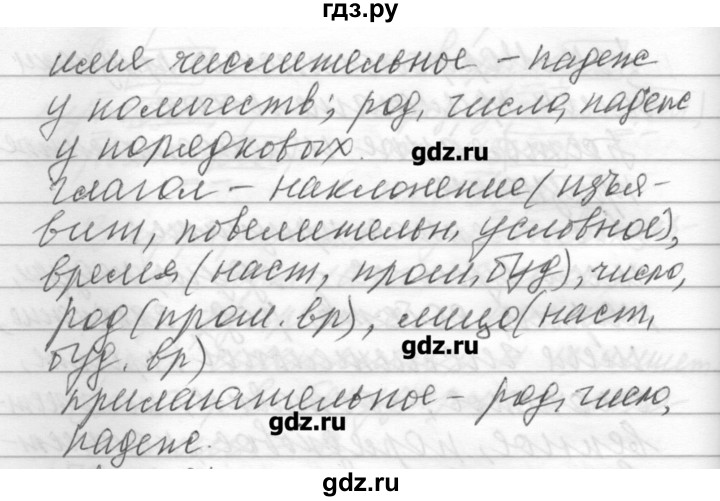 гдз.ру
имя числительное – падеж
у количеств; род, число, падеж
у порядковых.
gdz.ru
глагол – наклонение (изъя-
вит, повелительн, условное),
время (наст, прош, буд), число,
род (прош. вр), лицо (наст,
gdz.ru
буд. вр)
прилагательное – род, число,
gdz.ru
падеж.
gdz.ru